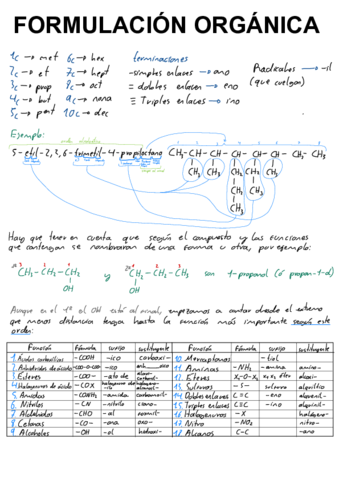 FORMULACIÓN ORGÁNICA
1c → met 6c → hex terminaciones
2c → et 7c → hept -simples enlaces → ano Radicales → -il
3c → prop 8c → oct = dobles enlaces → eno (que cuelgan)
4c → but 9c → nona ≡ Triples enlaces → ino
5c → pent 10c → dec
Ejemplo:
5-etil-2,3,6-trimetil-4-propiloctano CH₃-CH-CH-CH-CH-CH-CH₂-CH₃
CH₃ CH₃ CH₂ CH₂ CH₃
CH₂ CH₃
CH₃
Hay que tener en cuenta que según el compuesto y las funciones
que contengan se nombraran de una forma u otra, por ejemplo:
CH₃-CH₂-CH₂ y CH₂-CH₂-CH₃ son 1-propanol (o propan-1-ol)
OH OH
Aunque en el 1º el OH esté al final, empezamos a contar desde el extremo
que menos distancia tenga hasta la función más importante según este
orden:
Función Fórmula sufijo sustituyente Función Fórmula sufijo sustituyente
1. Ácidos carboxílicos -COOH -ico carboxi- 10. Mercaptanos -tiol
2. Anhídridos de ácido -CO-O-CO- -ico 11. Aminas -NH₂ -amina amino-
3. Esteres -COO- -ato de 12. Éteres éter
4. Halogenuros de ácido -COX 13. Sulfuros -S- sulfuro
5. Amidas -CONH₂ -amida 14. Dobles enlaces C=C -eno
6. Nitrilos -CN -nitrilo ciano- 15. Triples enlaces C≡C -ino
7. Aldehídos -CHO -al formil- 16. Halogenuros -X halógeno-
8. Cetonas -CO -ona oxo- 17. Nitro -NO₂ nitro-
9. Alcoholes -OH -ol hidroxi- 18. Alcanos C-C -ano